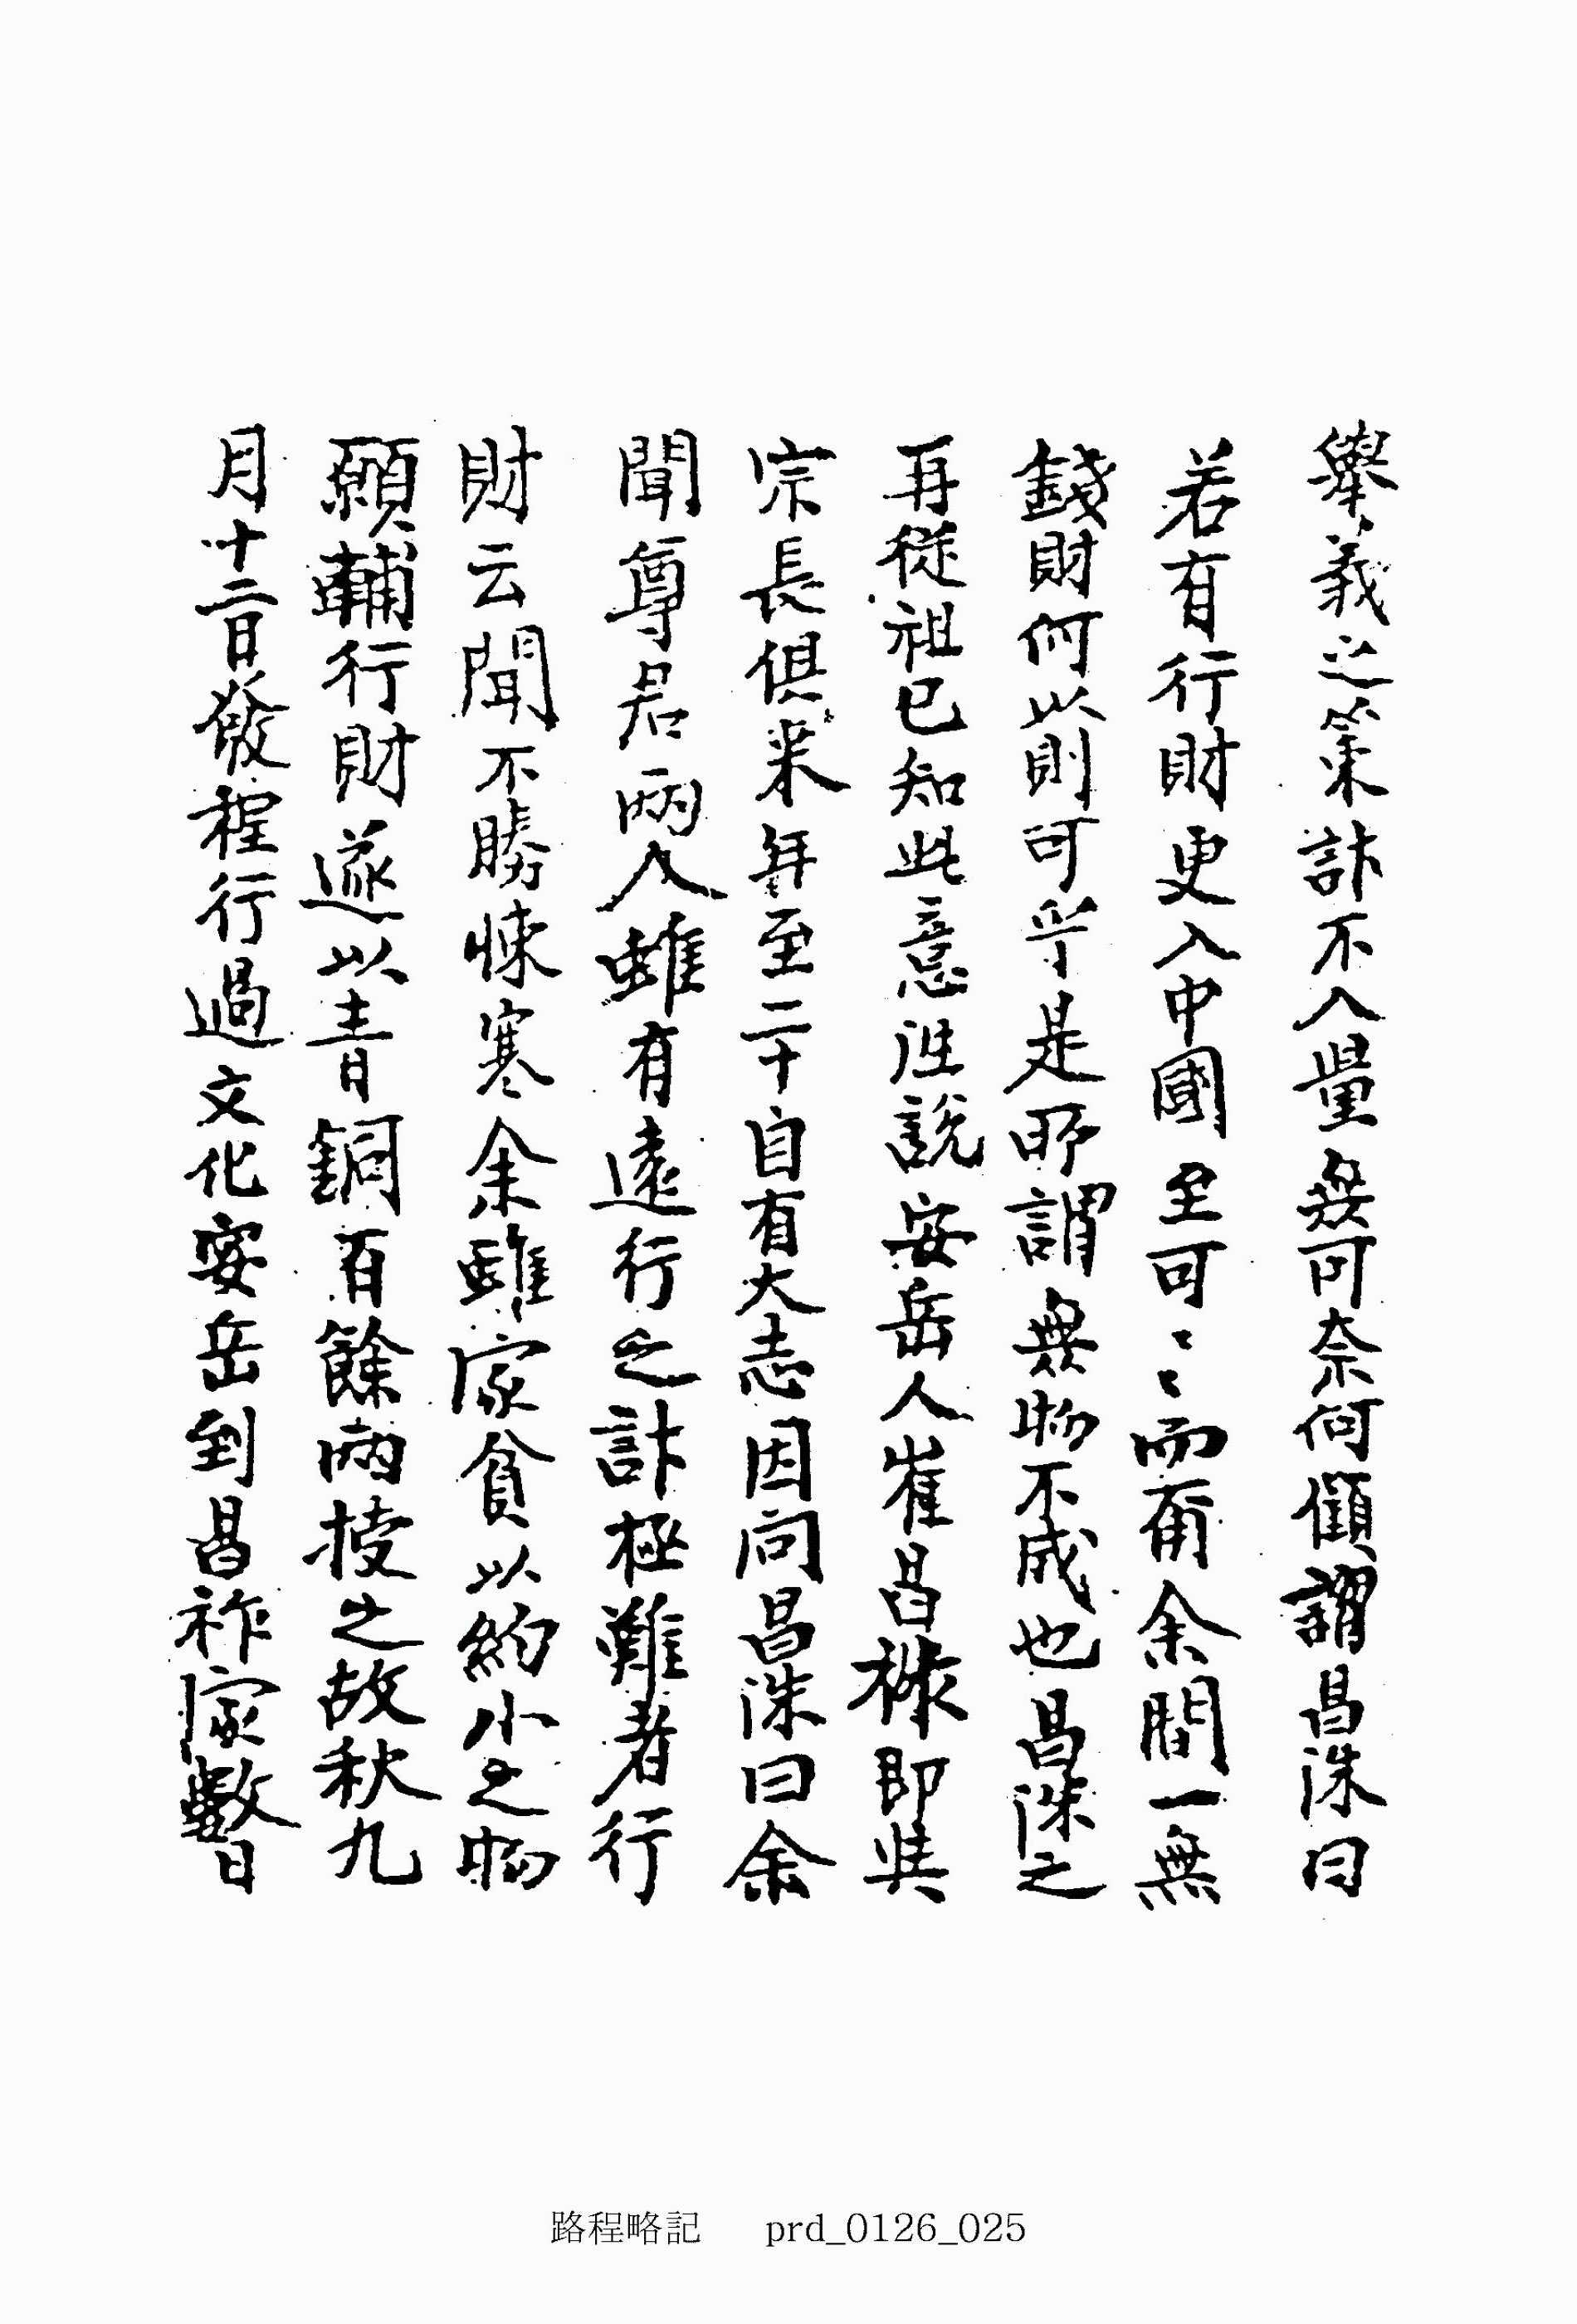 擧義之策計不入量無可奈何顧謂昌洙曰
若有行財更入中國至可〻〻而爾余間一無
錢財何以則可乎是所謂無物不成也昌洙之
再從祖已知此意往說安岳人崔昌祿即其
宗長俱來年至二十自有大志因向昌洙曰余
聞尊君兩人雖有遠行之計極難者行
財云聞不勝悚寒余雖家貧以約小之物
願輔行財遂以青銅百餘兩授之故秋九
月十二日發程行過文化安岳到昌祚家數日
路程略記 prd_0126_025